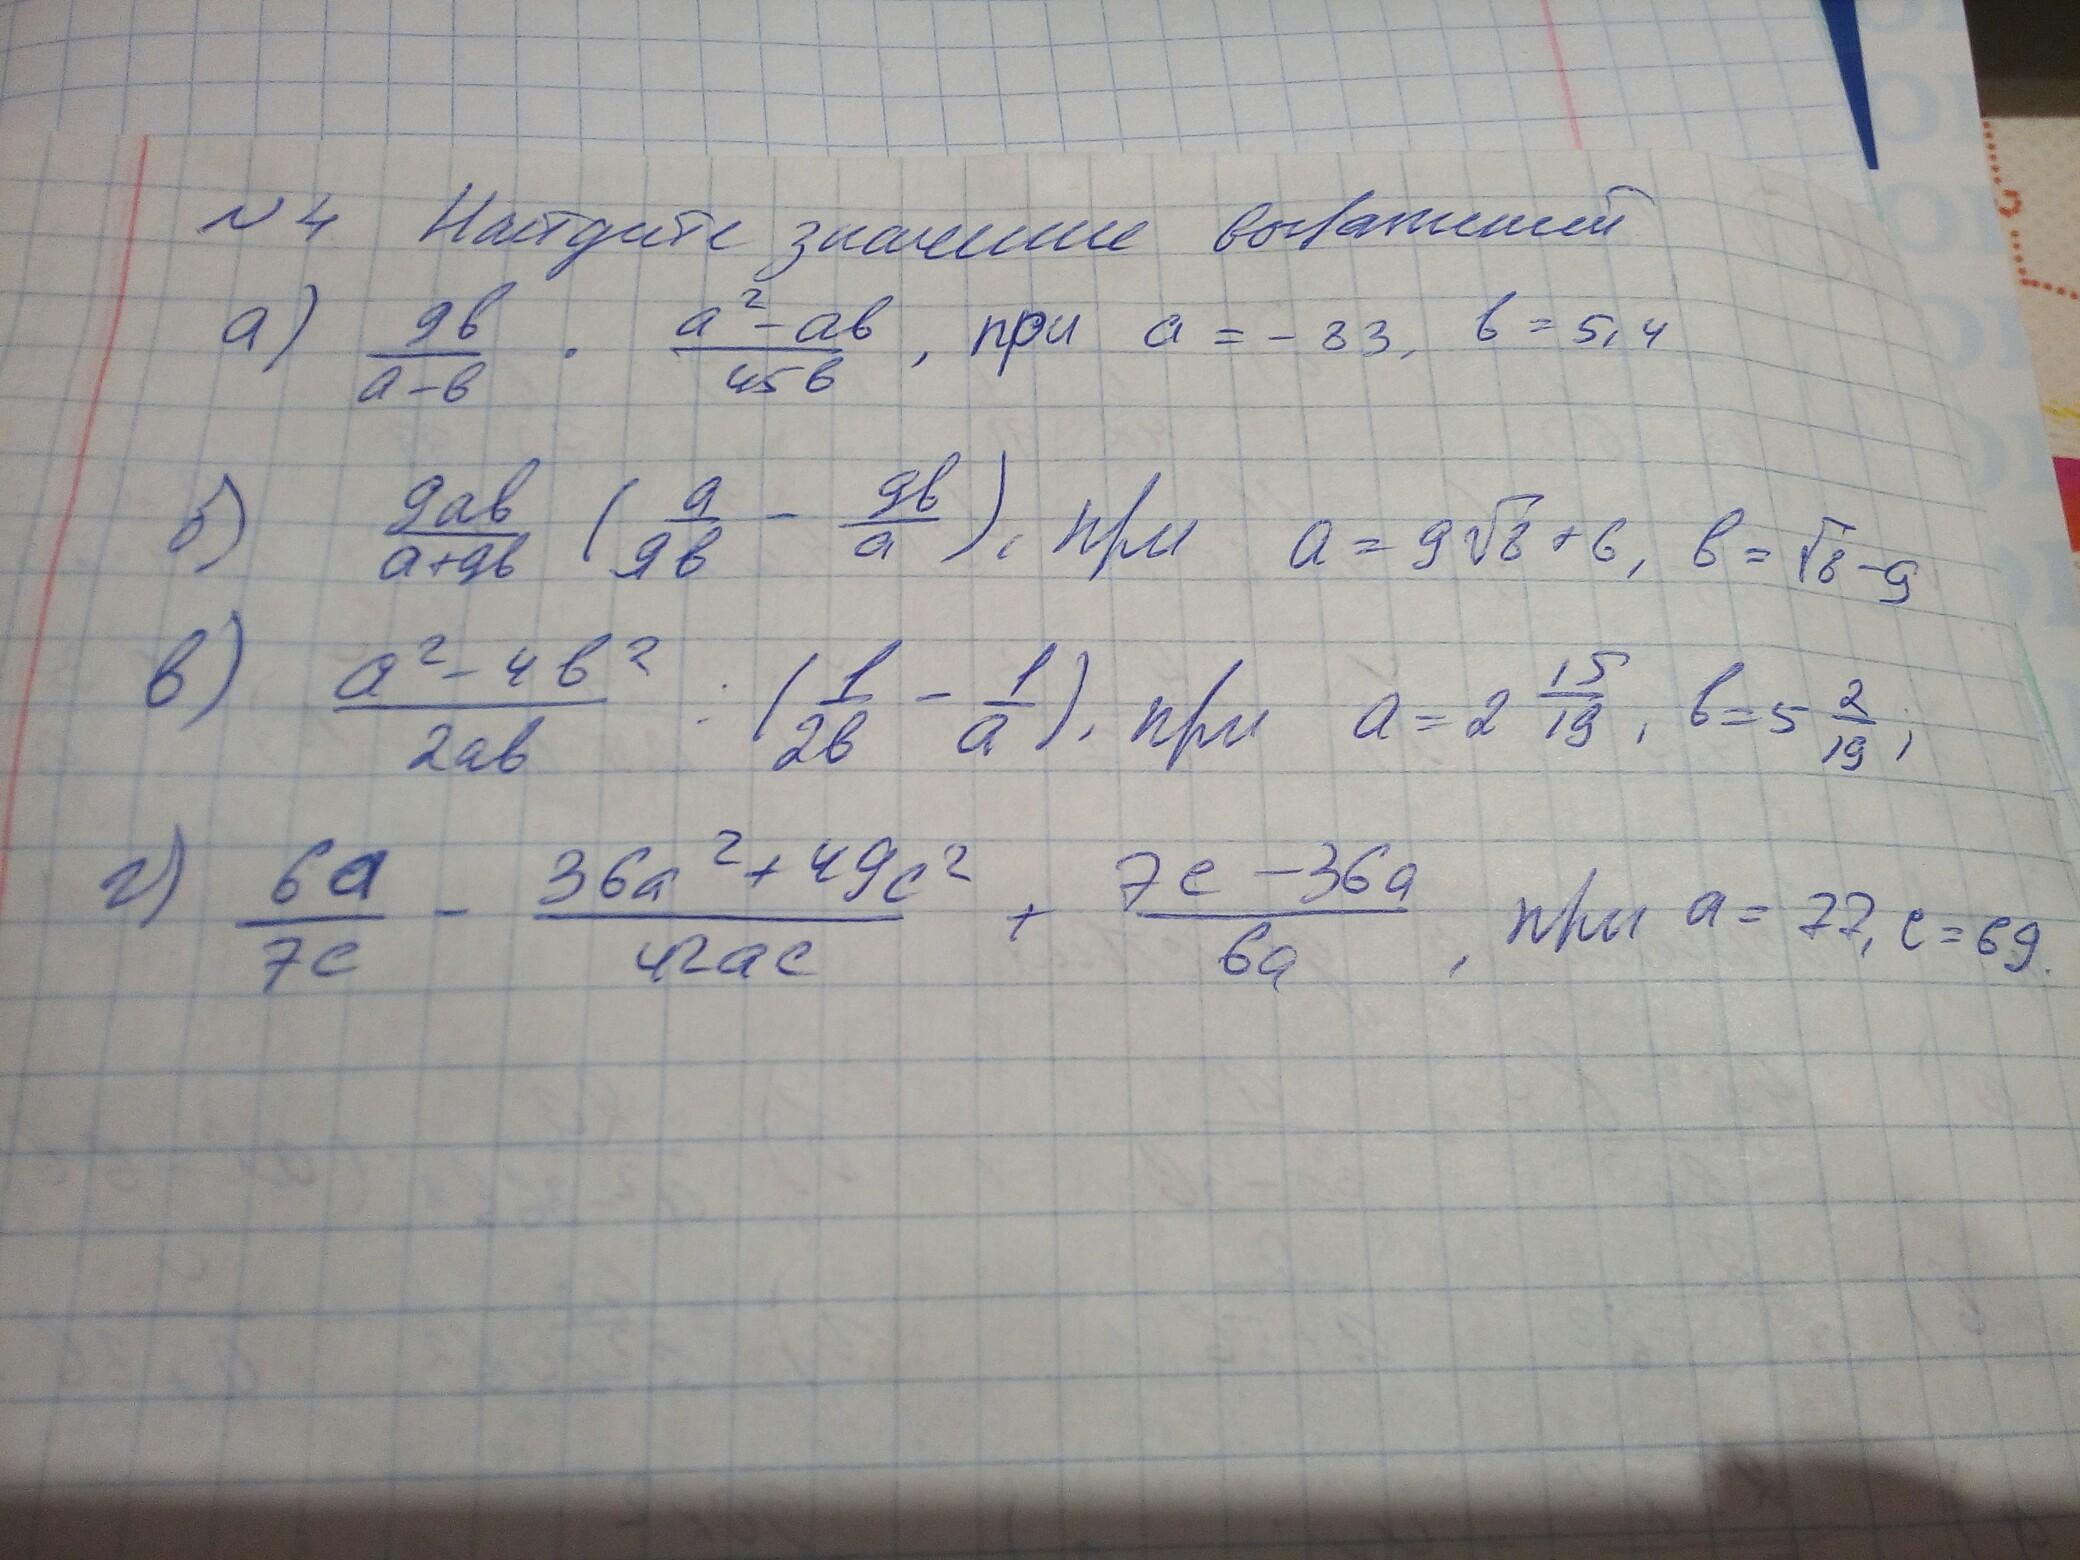 №4 Найдите значение выражений
а) 9в/(а-в) · (а²-ав)/45в, при а = -83, в = 5,4
б) 9ав/(а+9в) (а/9в - 9в/а), при а = 9√8+6, в = √8-9
в) (а²-4в²)/2ав : (1/2в - 1/а), при а = 2 15/19, в = 5 2/19;
г) 6а/7с - (36а²+49с²)/42ас + (7с-36а)/6а, при а = 77, с = 69.